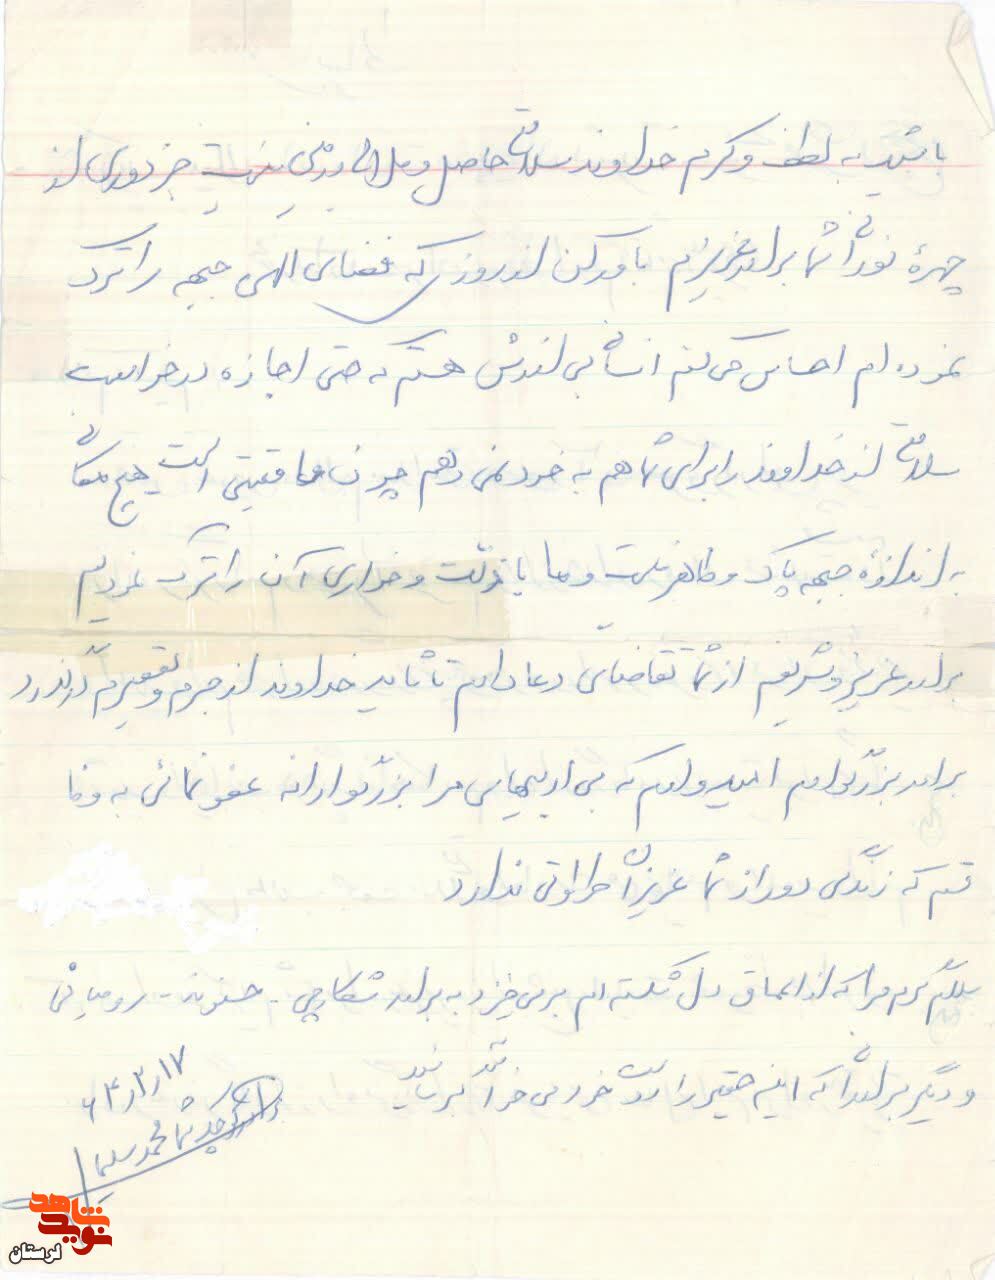 باشید به لطف و کرم خداوند سلامتی حاصل و ملالی در بین نیست جز دوری از
چهرهٔ نورانی شما برادر عزیزم باور کن از روزی که فضای الهی جبهه را ترک
نموده ام احساس می کنم انسانی بی ارزش هستم که حتی اجازه درخواست
سلامتی از خداوند را برای شما هم به خود نمی دهم چون واقعیتی است هیچ مکانی
به اندازهٔ جبهه پاک و طاهر نیست و ما با ذلت و خواری آن را ترک نمودیم
برادر عزیز و شریفم از شما تقاضای دعا دارم تا شاید خداوند از جرم و تقصیرم درگذرد
برادر بزرگوارم امیدوارم که بی ادبیهای مرا بزرگوارانه عفو نمائی به وفا
قسم که زندگی دور از شما عزیزان حلاوتی ندارد
سلام گرم مرا که از اعماق دل شکسته ام بر می خیزد به برادر شکارچی - حسنوند - رومیانی
و دیگر برادرانی که این حقیر را دوست خود می خوانند برسانید
۶۴/۲/۱۷
برادر کوچک شما محمد سلیمانی
نوید شاهد
لرستان